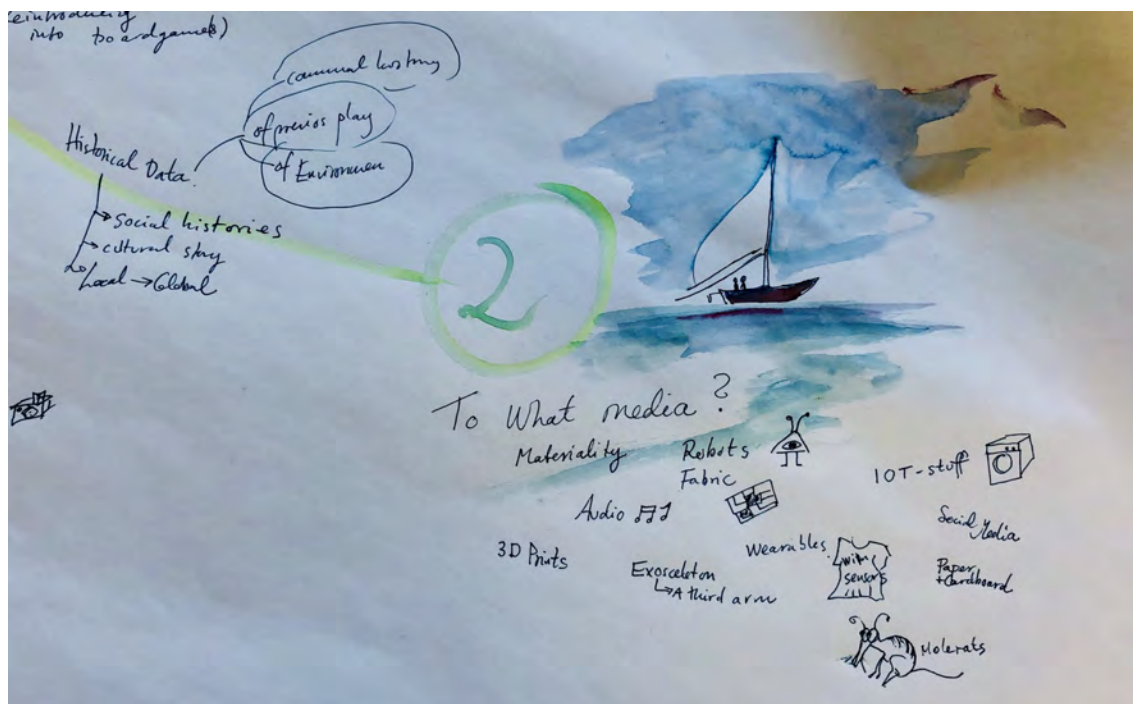 (reintroducing
into boardgames)
communal history
of previos play
of Environmen
Historical Data.
→ Social histories
→ cultural story
→ Local → Global
2
To What media?
Materiality
Robots
Fabric
IOT-stuff
Audio
Social Media
3D Prints
Wearables
with
sensors
Exosceleton
↳ A third arm
Paper
+Cardboard
Molerats